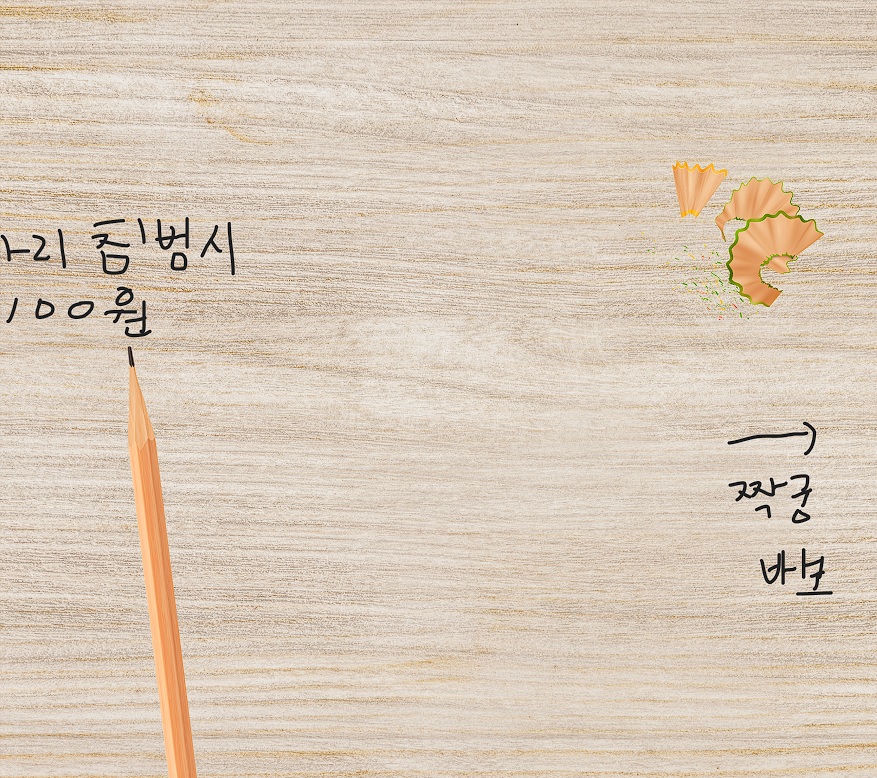 ㅏ리 침범시
100원
→
짝궁
바보